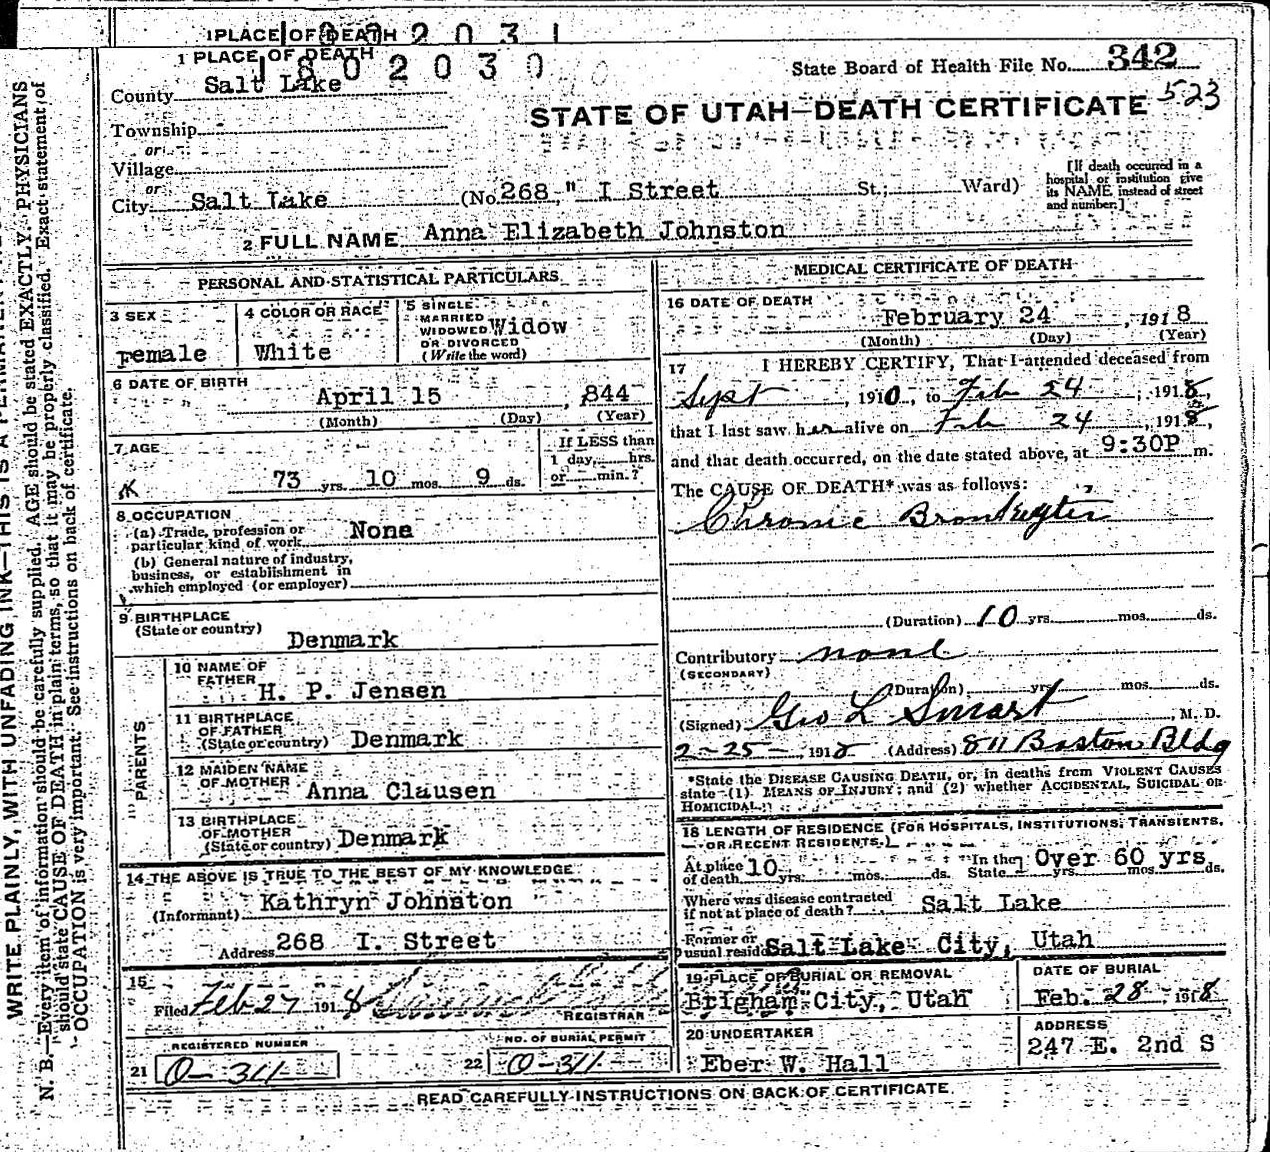 1 PLACE OF DEATH
1 PLACE OF DEATH
1802030
State Board of Health File No. 342
523
County Salt Lake
STATE OF UTAH—DEATH CERTIFICATE
Township
or
Village
or
City Salt Lake (No. 268 " I Street St.; Ward)
[If death occurred in a hospital or institution give its NAME instead of street and number.]
2 FULL NAME Anna Elizabeth Johnston
PERSONAL AND STATISTICAL PARTICULARS
3 SEX Female
4 COLOR OR RACE White
5 SINGLE MARRIED WIDOWED OR DIVORCED (Write the word) Widow
6 DATE OF BIRTH
April 15, 844
(Month) (Day) (Year)
7 AGE
73 yrs. 10 mos. 9 ds.
If LESS than 1 day, hrs. or min.?
8 OCCUPATION
(a) Trade, profession or particular kind of work None
(b) General nature of industry, business, or establishment in which employed (or employer)
9 BIRTHPLACE
(State or country) Denmark
PARENTS
10 NAME OF FATHER H. P. Jensen
11 BIRTHPLACE OF FATHER (State or country) Denmark
12 MAIDEN NAME OF MOTHER Anna Clausen
13 BIRTHPLACE OF MOTHER (State or country) Denmark
14 THE ABOVE IS TRUE TO THE BEST OF MY KNOWLEDGE
(Informant) Kathryn Johnston
Address 268 I. Street
15
Filed Feb 27 1918
REGISTRAR
REGISTERED NUMBER
21 O-311
NO. OF BURIAL PERMIT
22 O-311
MEDICAL CERTIFICATE OF DEATH
16 DATE OF DEATH
February 24, 1918
(Month) (Day) (Year)
17 I HEREBY CERTIFY, That I attended deceased from
Sept, 1910, to Feb 24, 1918,
that I last saw her alive on Feb 24, 1918,
and that death occurred, on the date stated above, at 9:30P m.
The CAUSE OF DEATH* was as follows:
Chronic
(Duration) 10 yrs. mos. ds.
Contributory none
(SECONDARY)
(Duration) yrs. mos. ds.
(Signed) Geo L Smart, M. D.
2-25-, 1918 (Address) 811 Boston Bldg
*State the DISEASE CAUSING DEATH, or, in deaths from VIOLENT CAUSES
state (1) MEANS OF INJURY; and (2) whether ACCIDENTAL, SUICIDAL OR
HOMICIDAL.
18 LENGTH OF RESIDENCE (FOR HOSPITALS, INSTITUTIONS, TRANSIENTS,
OR RECENT RESIDENTS.)
At place of death 10 yrs. mos. ds. In the State Over 60 yrs yrs. mos. ds.
Where was disease contracted if not at place of death? Salt Lake
Former or usual residence Salt Lake City, Utah
19 PLACE OF BURIAL OR REMOVAL
Brigham City, Utah
DATE OF BURIAL
Feb. 28, 1918
20 UNDERTAKER
Eber W. Hall
ADDRESS
247 E. 2nd S
READ CAREFULLY INSTRUCTIONS ON BACK OF CERTIFICATE
N. B.—Every item of information should be carefully supplied. AGE should be stated EXACTLY. PHYSICIANS
should state CAUSE OF DEATH in plain terms, so that it may be properly classified. Exact statement of
OCCUPATION is very important. See instructions on back of certificate.